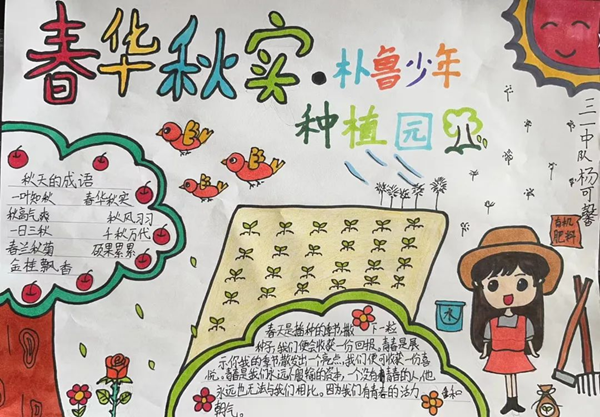 春华秋实·朴鲁少年
种植园
三一中队杨可馨
秋天的成语
一叶如秋 春华秋实
秋高气爽 秋风习习
一日三秋 千秋万代
春兰秋菊 硕果累累
金桂飘香
有机
肥料
水
春天是播种的季节,撒下一粒
种子,我们便会收获一份回报。青春是展
示你我的季节,散发出一个亮点,我们便可收获一份喜
悦。青春是我们永远不服输的资本,一个没有青春的人,他
永远也无法与我们相比。因为我们有青春的活力
朝气。